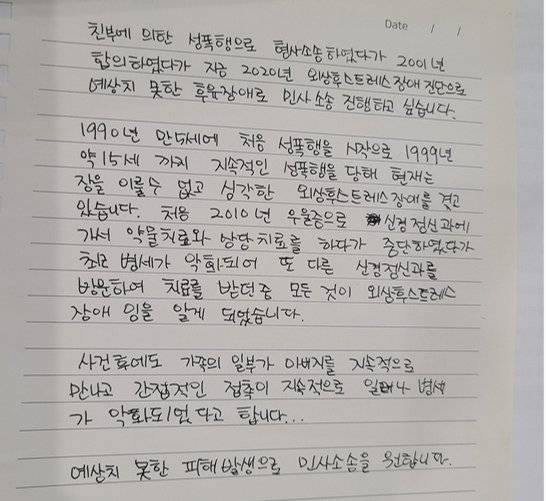 Date / /
친부에 의한 성폭행으로 형사소송하였다가 2001년
합의하였다가 지금 2020년 외상후스트레스장애 진단으로
예상치 못한 후유장애로 민사소송 진행하고 싶습니다.
1990년 만5세에 처음 성폭행을 시작으로 1999년
약 15세 까지 지속적인 성폭행을 당해 현재는
잠을 이룰수 없고 심각한 외상후스트레스장애를 겪고
있습니다. 처음 2010년 우울증으로 신경정신과에
가서 약물치료와 상담치료를 하다가 중단하였다가
최근 병세가 악화되어 또 다른 신경정신과를
방문하여 치료를 받던중 모든 것이 외상후스트레스
장애 임을 알게 되었습니다.
사건후에도 가족의 일부가 아버지를 지속적으로
만나고 간접적인 접촉이 지속적으로 일어나 병세
가 악화되었다고 합니다...
예상치 못한 피해발생으로 민사소송을 원합니다.